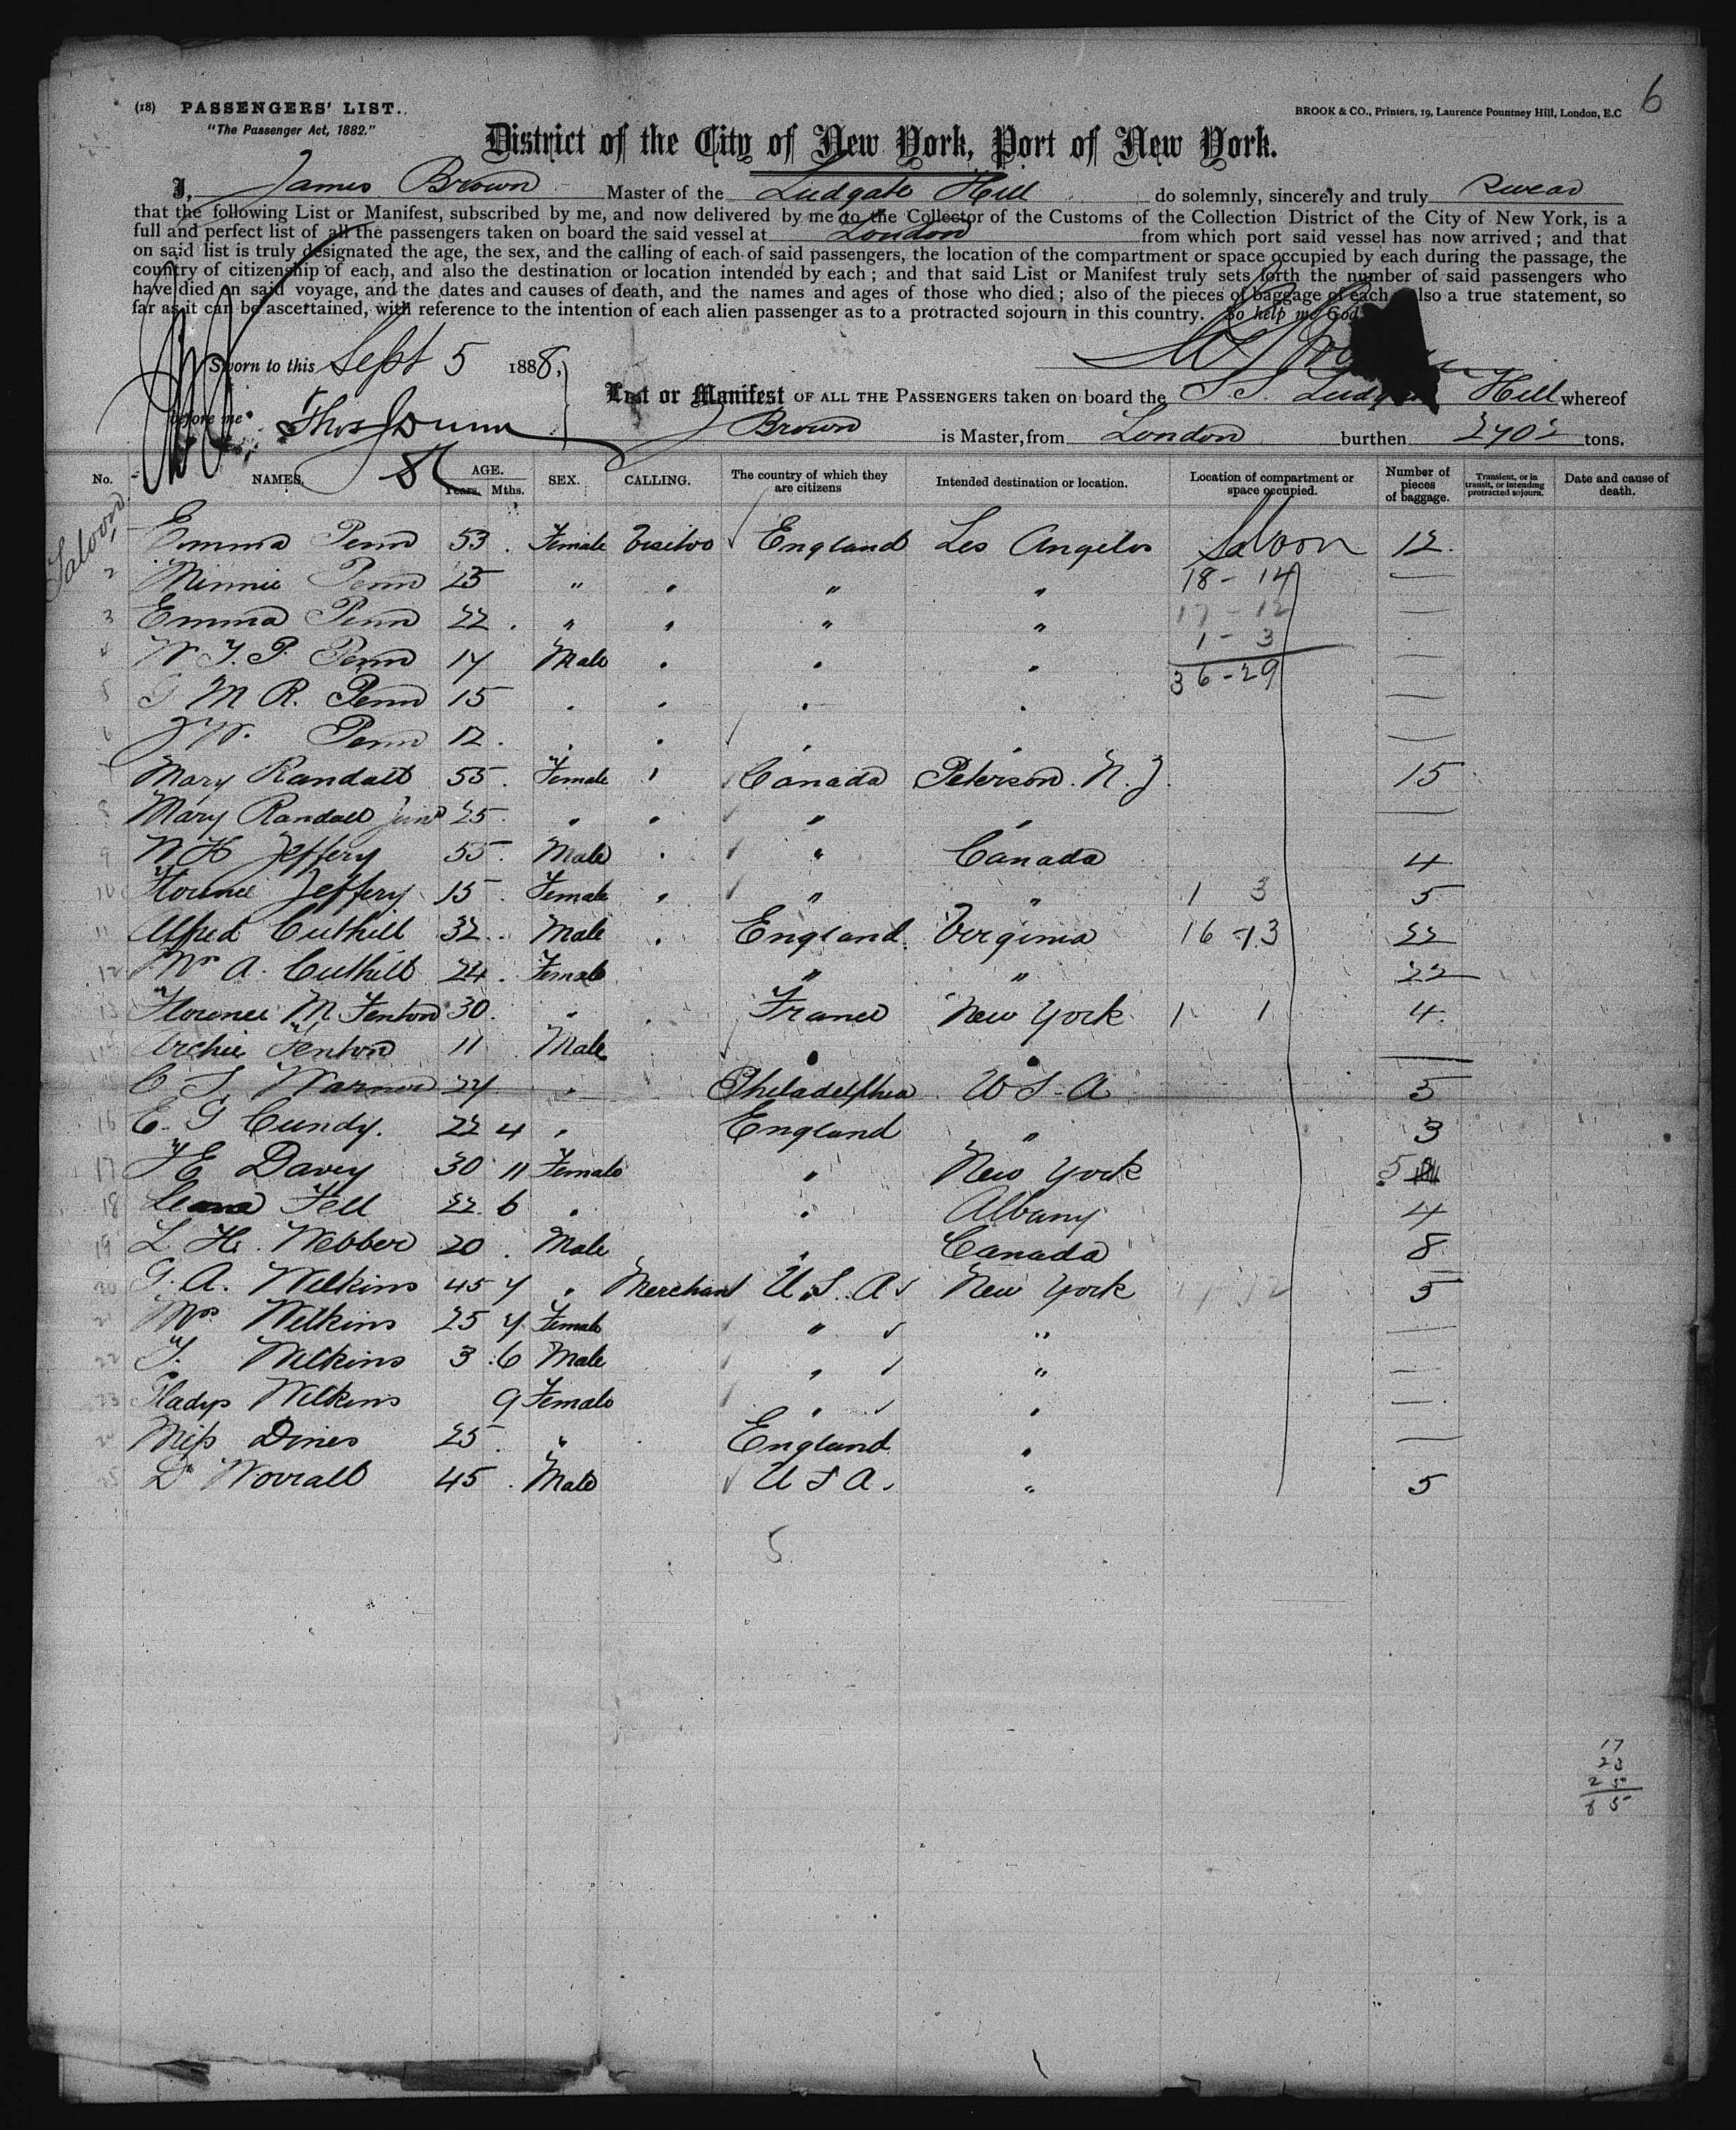 (18) PASSENGERS' LIST.
"The Passenger Act, 1882."
BROOK & CO., Printers, 19, Laurence Pountney Hill, London, E.C
6
District of the City of New York, Port of New York.
I, James Brown Master of the Ludgate Hill do solemnly, sincerely and truly swear
that the following List or Manifest, subscribed by me, and now delivered by me to the Collector of the Customs of the Collection District of the City of New York, is a
full and perfect list of all the passengers taken on board the said vessel at London from which port said vessel has now arrived; and that
on said list is truly designated the age, the sex, and the calling of each of said passengers, the location of the compartment or space occupied by each during the passage, the
country of citizenship of each, and also the destination or location intended by each; and that said List or Manifest truly sets forth the number of said passengers who
have died on said voyage, and the dates and causes of death, and the names and ages of those who died; also of the pieces of baggage of each also a true statement, so
far as it can be ascertained, with reference to the intention of each alien passenger as to a protracted sojourn in this country. So help me God
Sworn to this Sept 5 1888,
before me Thos Dunn
List or Manifest OF ALL THE PASSENGERS taken on board the S.S. Ludgate Hill whereof
J Brown is Master, from London burthen 2702 tons.
No. NAMES. AGE. Years. Mths. SEX. CALLING. The country of which they are citizens Intended destination or location. Location of compartment or space occupied. Number of pieces of baggage. Transient, or in transit, or intending protracted sojourn. Date and cause of death.
Saloon
1 Emma Penn 53 Female Visitor England Los Angelos Saloon 12
2 Minnie Penn 25 " " " " 18 - 14 —
3 Emma Penn 22 " " " " 17 - 12 —
4 W. T. P. Penn 17 Male " " " 1 - 3 —
36 - 29
5 G M R. Penn 15 " " " " —
6 J W. Penn 12 " " " " —
7 Mary Randall 55 Female " Canada Peterson. N. J. 15
8 Mary Randall Junr 25 " " " " —
9 W H Jeffery 55 Male " " Canada 4
10 Florence Jeffery 15 Female " " " 1 3 5
11 Alfred Cuthill 32 Male " England Virginia 16 - 13 22
12 Mrs A. Cuthill 24 Female " " 22
13 Florence M. Fenton 30 " " France New York 1 1 4
14 Archie Fenton 11 Male " " —
15 C S. Warner 27 " Philadelphia U S A 5
16 E. G Cundy. 22 4 " England " 3
17 F E Davey 30 11 Female " New York 5
18 Leana Fell 22 6 " " Albany 4
19 L. H. Webber 20 Male " Canada 8
20 G. A. Wilkins 45 7 " Merchant U. S. A New York 5
21 Mrs Wilkins 25 7 Female " " —
22 T. Wilkins 3 6 Male " " —
23 Gladys Wilkins 9 Female " " —
24 Miss Dines 25 " England " —
25 Dr Worrall 45 Male U S A. " 5
5
17
23
25
65